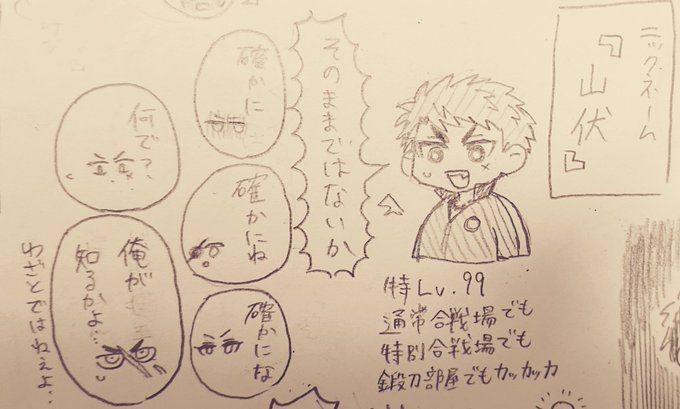 ニックネーム
『山伏』
そのままではないか
特Lv.99
通常合戦場でも
特別合戦場でも
鍛刀部屋でもカッカッカ
確かに
確かにね
確かにな
何で？
俺が
知るかよ…
わざとではねぇよ…